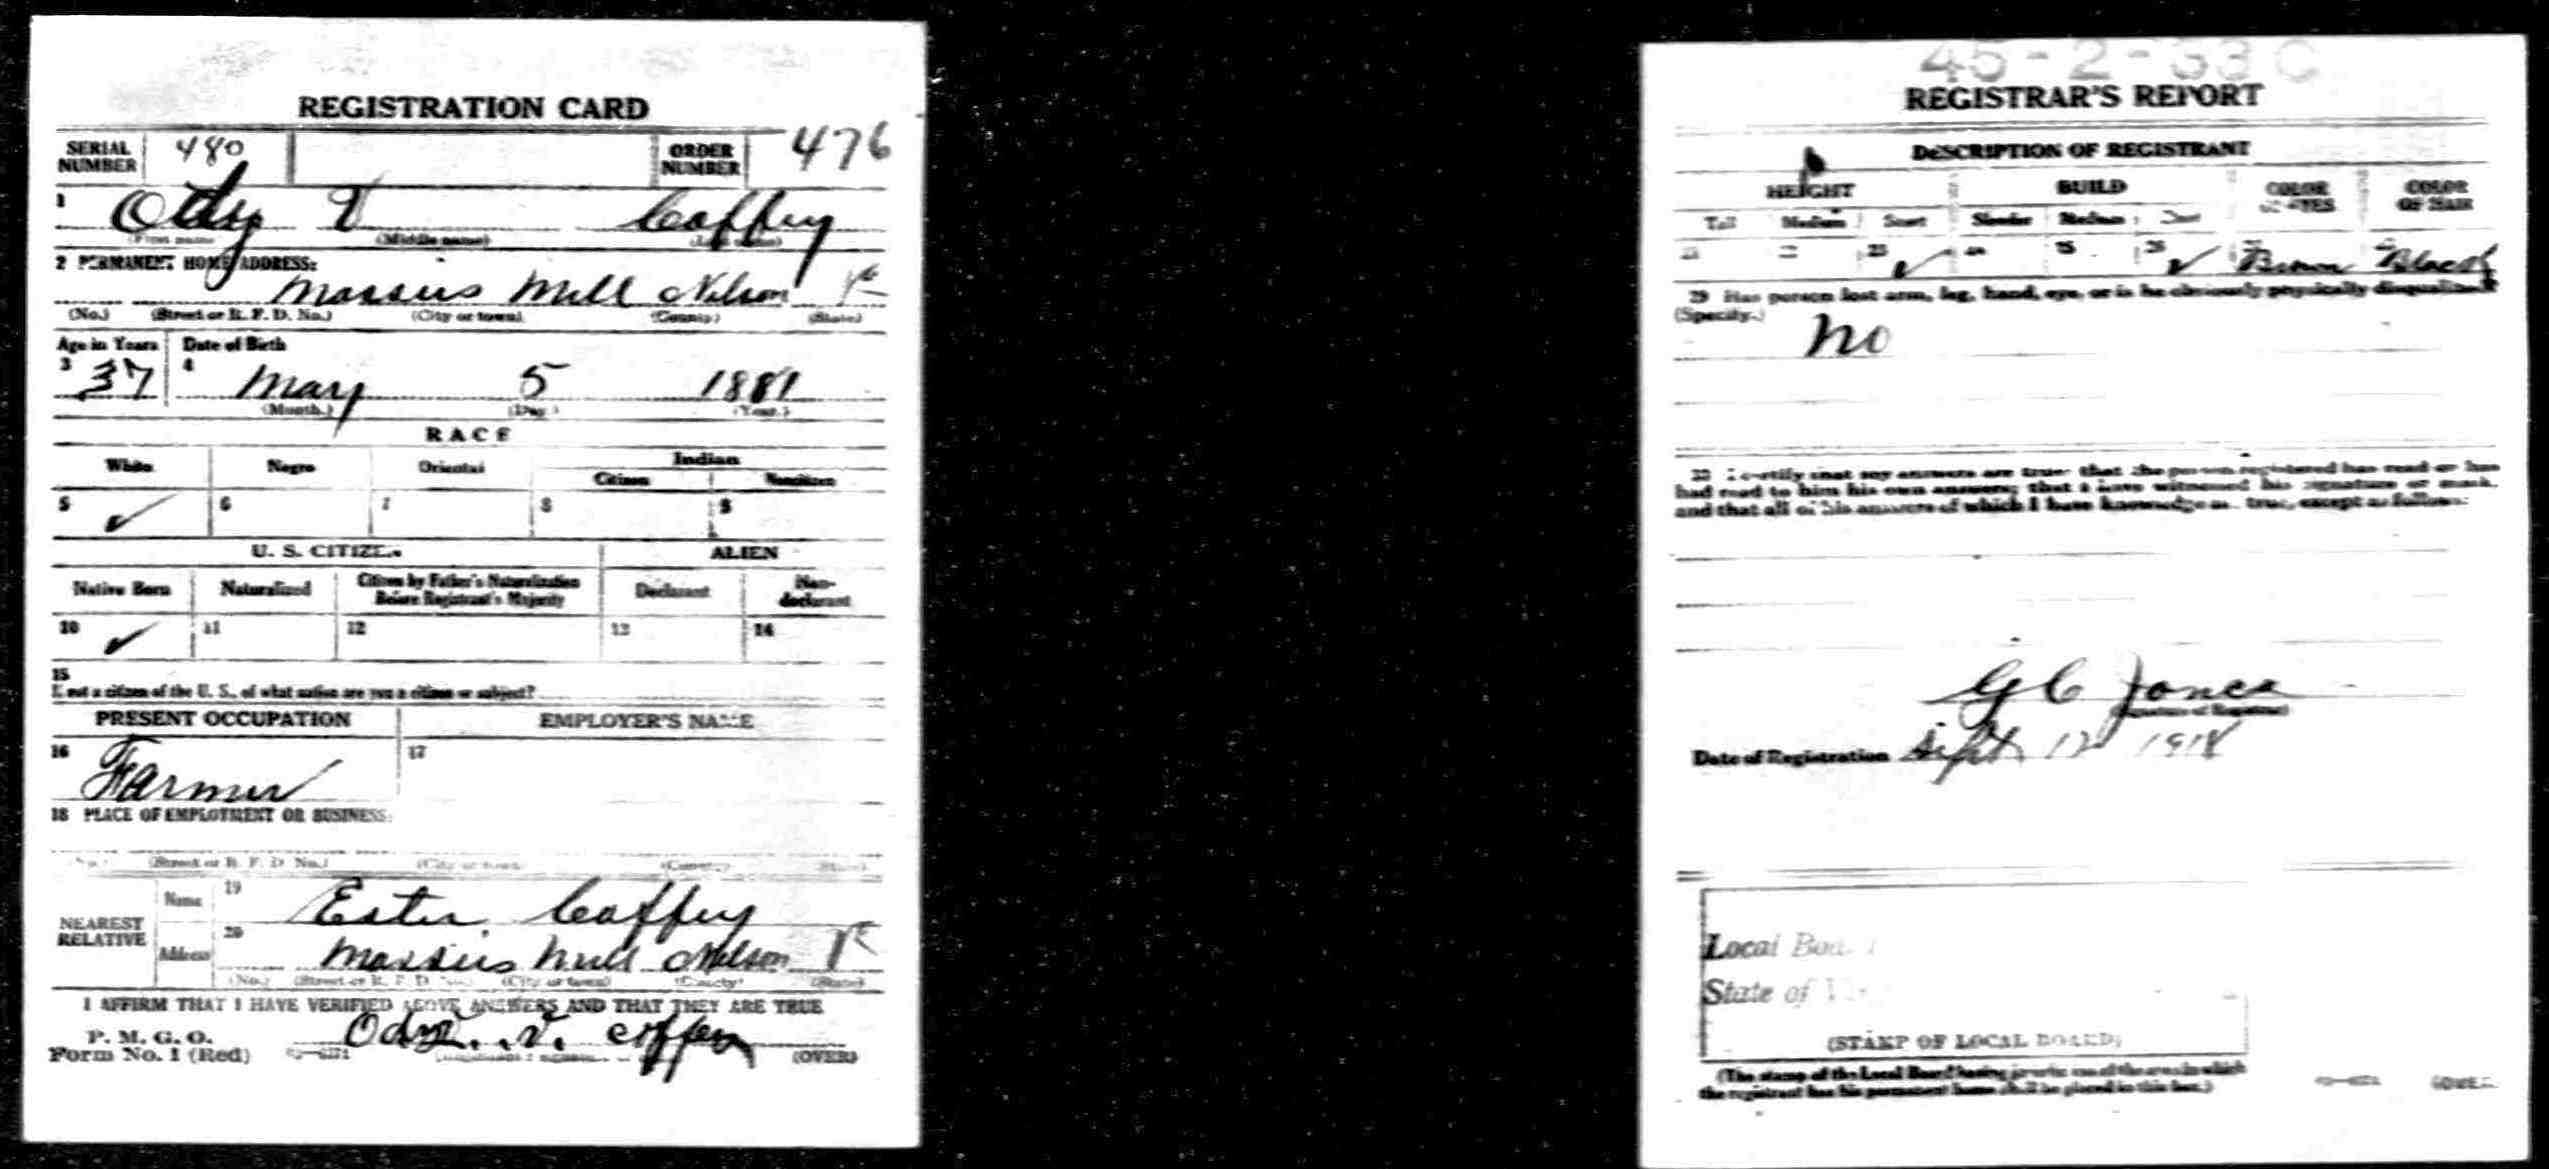 REGISTRATION CARD
SERIAL NUMBER 480 ORDER NUMBER 476
1 Ody V Coffey
(First name) (Middle name) (Last name)
2 PERMANENT HOME ADDRESS:
Massies Mill Nelson Va
(No.) (Street or R. F. D. No.) (City or town) (County) (State)
Age in Years Date of Birth
3 37 4 May 5 1881
(Month.) (Day.) (Year.)
RACE
White Negro Oriental Indian
Citizen Noncitizen
5 ✓ 6 7 8 9
U. S. CITIZEN ALIEN
Native Born Naturalized Citizen by Father's Naturalization Before Registrant's Majority Declarant Non-declarant
10 ✓ 11 12 13 14
15
If not a citizen of the U. S., of what nation are you a citizen or subject?
PRESENT OCCUPATION EMPLOYER'S NAME
16 Farmer 17
18 PLACE OF EMPLOYMENT OR BUSINESS:
(No.) (Street or R. F. D. No.) (City or town) (County) (State)
NEAREST RELATIVE Name 19 Ester Coffey
Address 20 Massies Mill Nelson Va
(No.) (Street or R. F. D. No.) (City or town) (County) (State)
I AFFIRM THAT I HAVE VERIFIED ABOVE ANSWERS AND THAT THEY ARE TRUE
P. M. G. O.
Form No. 1 (Red) V. Coffey (OVER)
45-2-33 C
REGISTRAR'S REPORT
DESCRIPTION OF REGISTRANT
HEIGHT BUILD COLOR OF EYES COLOR OF HAIR
Tall Medium Short Slender Medium Stout
21 22 23 ✓ 24 25 26 ✓ 27 Brown 28 Black
29 Has person lost arm, leg, hand, eye, or is he obviously physically disqualified?
(Specify.) no
30 I certify that my answers are true; that the person registered has read or has
had read to him his own answers; that I have witnessed his signature or mark,
and that all of his answers of which I have knowledge are true, except as follows:
G C Jones
(Signature of Registrar)
Date of Registration Sept 12 1918
Local Board
State of
(STAMP OF LOCAL BOARD)
(The stamp of the Local Board having jurisdiction of the area in which
the registrant has his permanent home shall be placed in this box.)
(OVER)